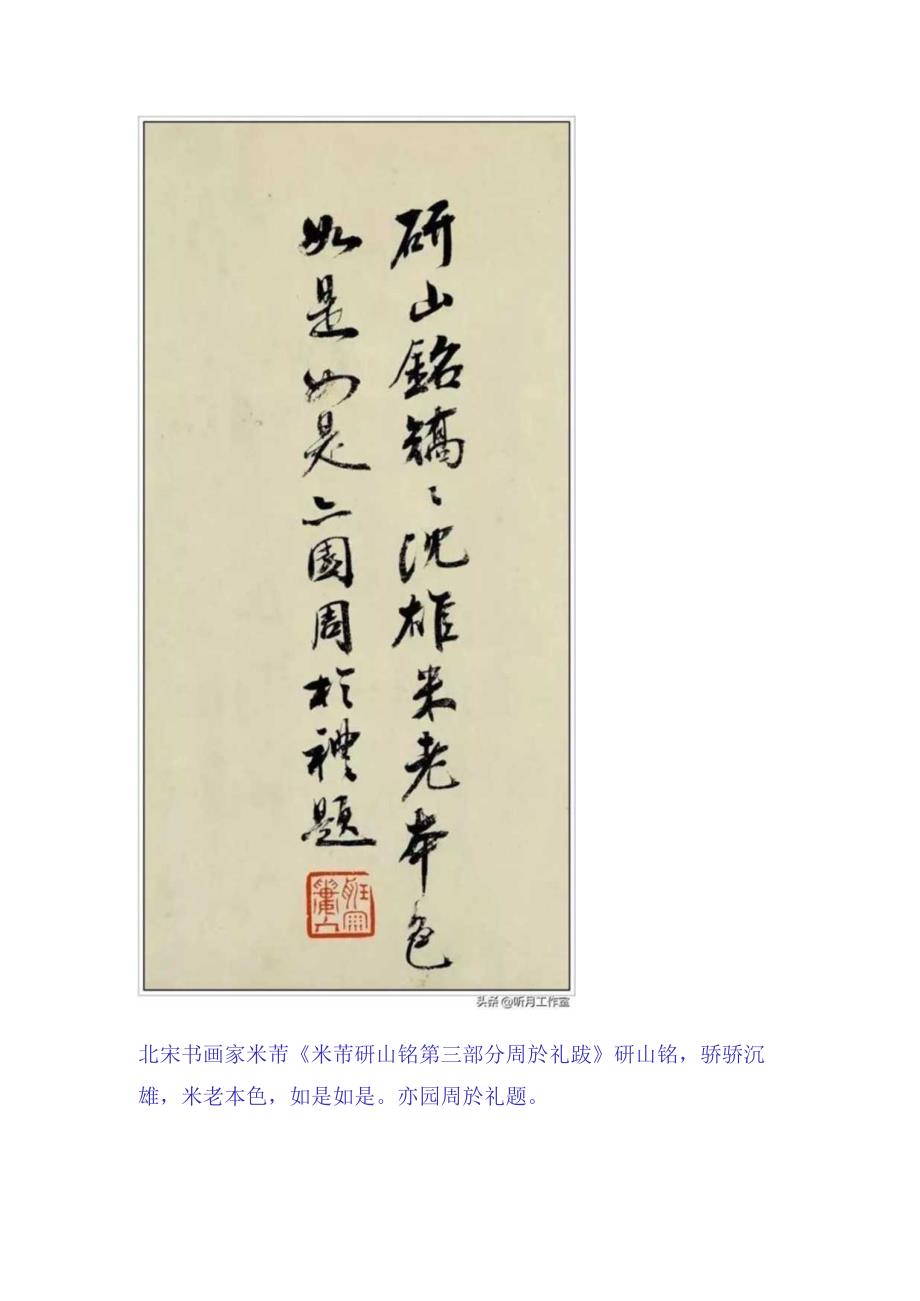 研山銘矯〻沈雄米老本色
如是如是亦園周於禮題
头条 @听月工作室
北宋书画家米芾《米芾研山铭第三部分周於礼跋》研山铭，骄骄沉
雄，米老本色，如是如是。亦园周於礼题。